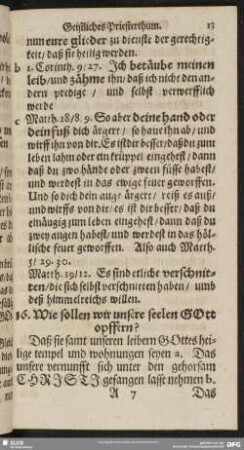 Geistliches Priesterthum. 13
nun eure glieder zu dienste der gerechtig-
keit / daß sie heilig werden.
b 1. Corinth. 9/27. Ich betäube meinen
leib / und zähme ihn / daß ich nicht den an-
dern predige / und selbst verwerfflich
werde
c Matth. 18/8. 9. So aber deine hand oder
dein fuß dich ärgert / so haue ihn ab / und
wirff ihn von dir. Es ist dir besser / daß du zum
leben lahm oder ein krüppel eingehest / dann
daß du zwo hände oder zween füsse habest /
und werdest in das ewige feuer geworffen.
Und so dich dein auge ärgert / reiß es auß /
und wirffs von dir / es ist dir besser / daß du
einäugig zum leben eingehest / dann daß du
zwey augen habest / und werdest in das höl-
lische feuer geworffen. Also auch Matth.
5/ 29-30.
Matth. 19/12. Es sind etliche verschnit-
ten / die sich selbst verschnitten haben / umb
deß himmelreichs willen.
16. Wie sollen wir unsere seelen GOtt
opffern?
Daß sie samt unseren leibern GOttes hei-
lige tempel und wohnungen seyen a. Das
unsere vernunfft sich unter den gehorsam
CHRISTI gefangen lasse nehmen b.
A 7 Das